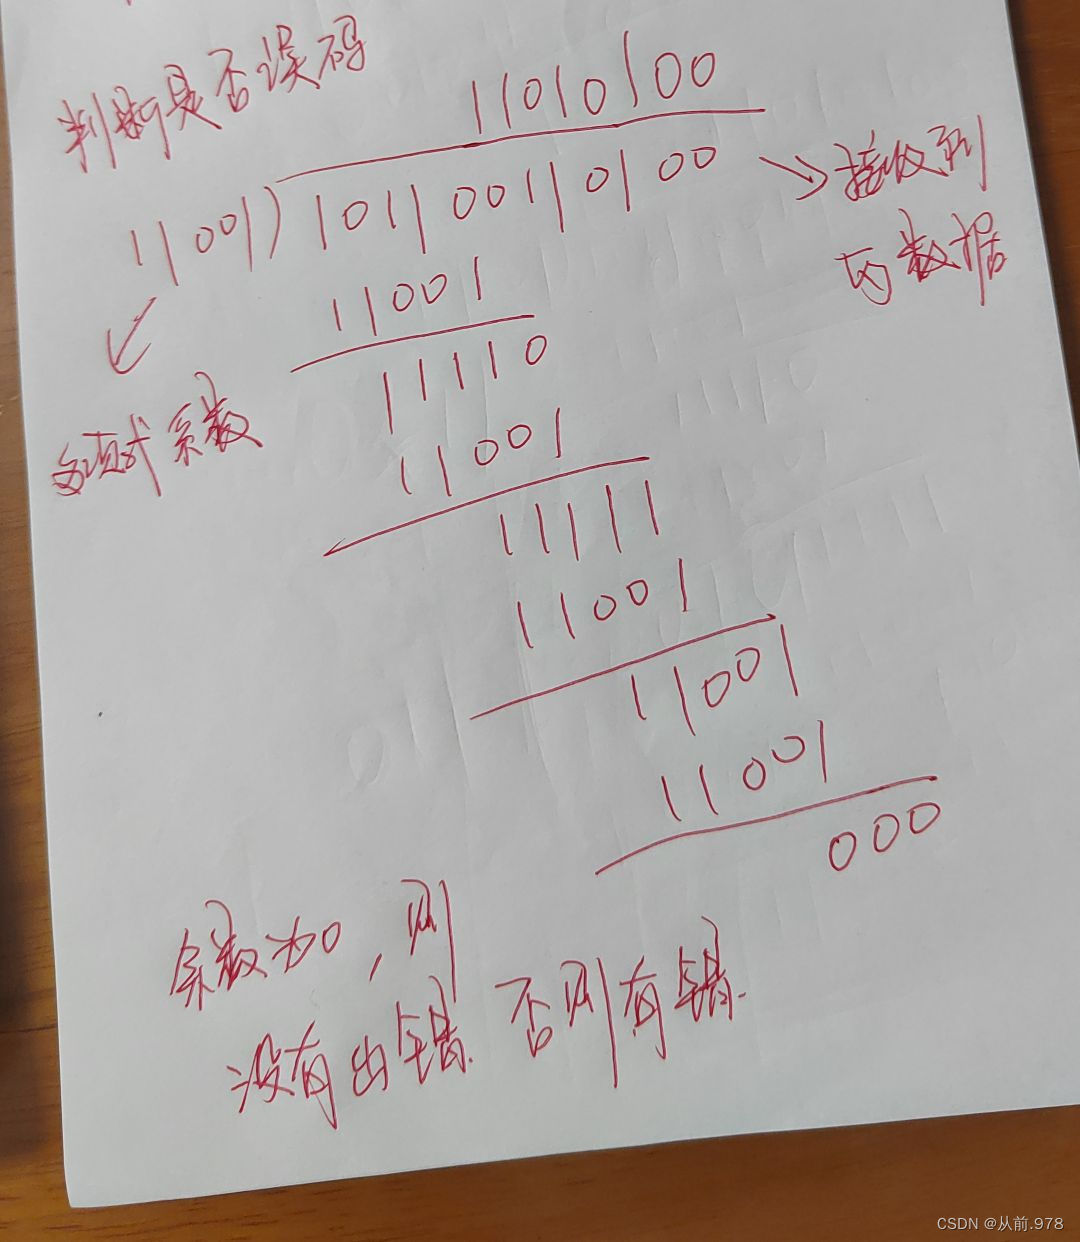 判断是否误码
11010100
11001)101100110100 → 接收到
的数据
11001
11110
多项式系数
11001
11111
11001
11001
11001
000
余数为0，则
没有出错.否则有错.
CSDN @从前.978